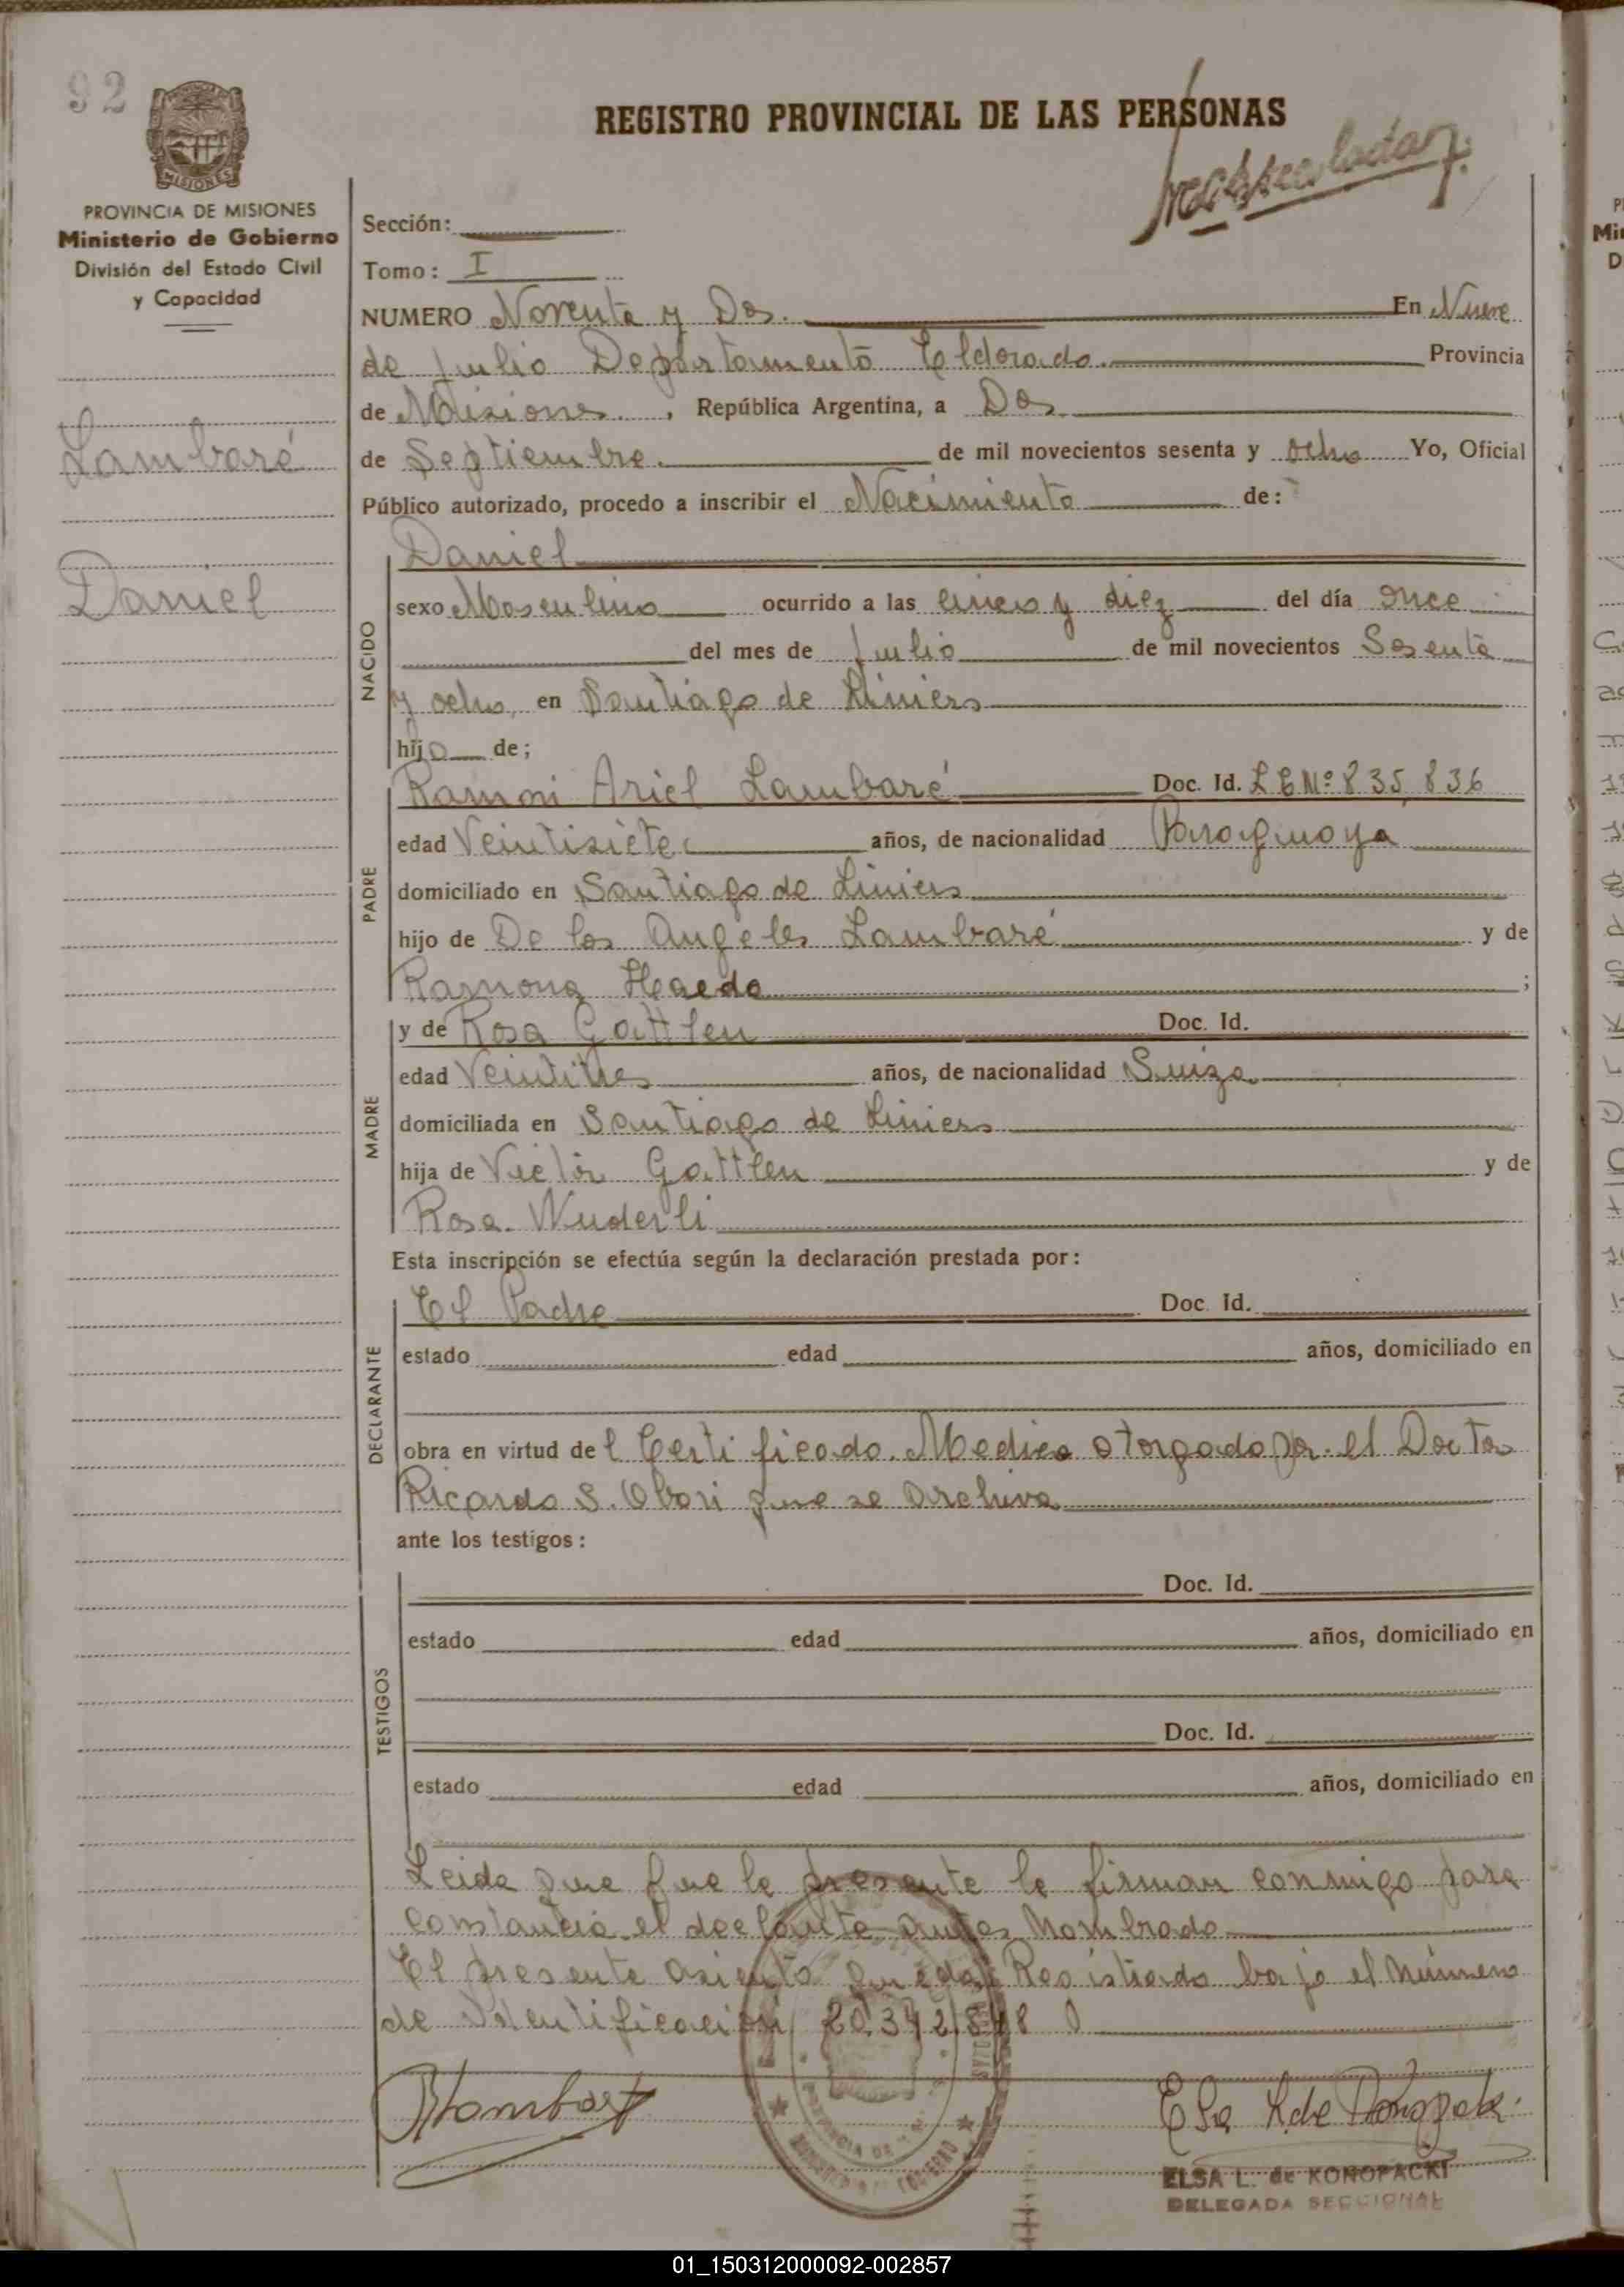 92
REGISTRO PROVINCIAL DE LAS PERSONAS
MISIONES
PROVINCIA DE MISIONES
Ministerio de Gobierno
División del Estado Civil
y Capacidad
Lambaré
Daniel
Sección:
Tomo: I
NUMERO Noventa y Dos. En Nueve
de Julio Departamento Eldorado. Provincia
de Misiones, República Argentina, a Dos
de Septiembre. de mil novecientos sesenta y ocho Yo, Oficial
Público autorizado, procedo a inscribir el Nacimiento de:
NACIDO
Daniel
sexo Masculino ocurrido a las cinco y diez del día once
del mes de Julio de mil novecientos Sesenta
y ocho, en Santiago de Liniers
hijo de;
PADRE
Ramón Ariel Lambaré Doc. Id. L E Nº 835,836
edad Veintisiete años, de nacionalidad Paraguaya
domiciliado en Santiago de Liniers
hijo de De los Angeles Lambaré y de
Ramona Haedo ;
MADRE
y de Rosa Gattlen Doc. Id.
edad Veintitres años, de nacionalidad Suiza
domiciliada en Santiago de Liniers
hija de Victor Gattlen y de
Rosa Wuderli
Esta inscripción se efectúa según la declaración prestada por:
DECLARANTE
El Padre Doc. Id.
estado edad años, domiciliado en
obra en virtud del Certificado. Medico otorgado por el Doctor
Ricardo S. Obori que se archiva
ante los testigos:
TESTIGOS
Doc. Id.
estado edad años, domiciliado en
Doc. Id.
estado edad años, domiciliado en
Leida que fue la presente la firman conmigo para
constancia el declarante antes Nombrado
El presente asiento queda Registrado bajo el Número
de Identificación
ELSA L. de KONOPACKI
DELEGADA SECCIONAL
01_150312000092-002857